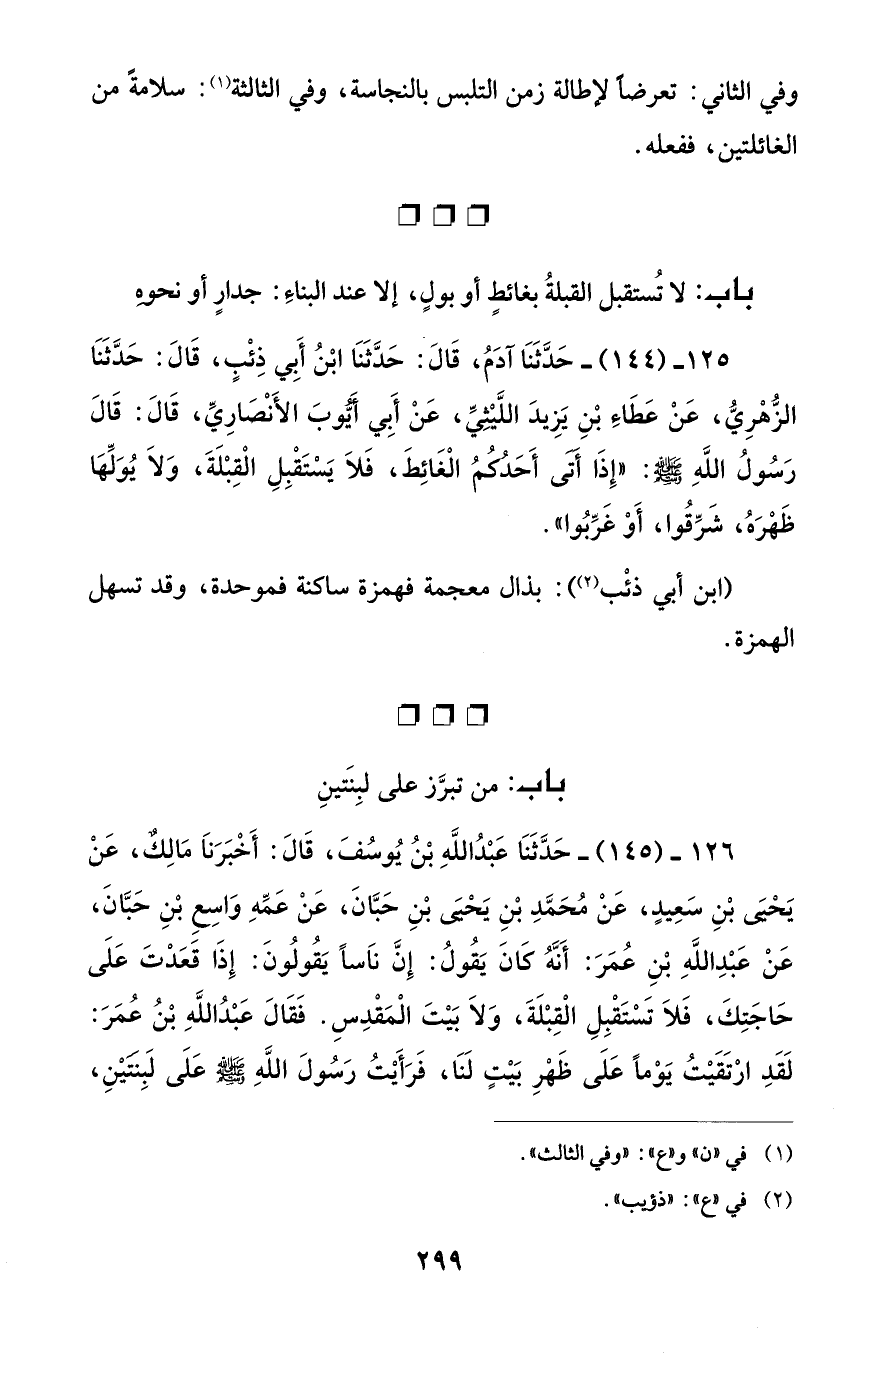 وفي الثاني: تعرضاً لإطالة زمن التلبس بالنجاسة، وفي الثالثة(١): سلامةً من
الغائلتين، ففعله.
باب: لا تُستقبل القبلةُ بغائطٍ أو بولٍ، إلا عند البناءِ: جدارٍ أو نحوهِ
١٢٥ـ (١٤٤) ـ حَدَّثَنَا آدَمُ، قَالَ: حَدَّثَنَا ابْنُ أَبِي ذِئْبٍ، قَالَ: حَدَّثَنَا
الزُّهْرِيُّ، عَنْ عَطَاءِ بْنِ يَزِيدَ اللَّيْثِيِّ، عَنْ أَبِي أَيُّوبَ الأَنْصَارِيِّ، قَالَ: قَالَ
رَسُولُ اللَّهِ ﷺ: «إِذَا أَتَى أَحَدُكُمُ الْغَائِطَ، فَلاَ يَسْتَقْبِلِ الْقِبْلَةَ، وَلاَ يُوَلِّهَا
ظَهْرَهُ، شَرِّقُوا، أَوْ غَرِّبُوا».
(ابن أبي ذئْب(٢)): بذال معجمة فهمزة ساكنة فموحدة، وقد تسهل
الهمزة.
باب: من تبرَّز على لَبِنَتينِ
١٢٦ ـ (١٤٥) ـ حَدَّثَنَا عَبْدُاللَّهِ بْنُ يُوسُفَ، قَالَ: أَخْبَرَنَا مَالِكٌ، عَنْ
يَحْيَى بْنِ سَعِيدٍ، عَنْ مُحَمَّدِ بْنِ يَحْيَى بْنِ حَبَّانَ، عَنْ عَمِّهِ وَاسِعِ بْنِ حَبَّانَ،
عَنْ عَبْدِاللَّهِ بْنِ عُمَرَ: أَنَّهُ كَانَ يَقُولُ: إِنَّ نَاساً يَقُولُونَ: إِذَا قَعَدْتَ عَلَى
حَاجَتِكَ، فَلاَ تَسْتَقْبِلِ الْقِبْلَةَ، وَلاَ بَيْتَ الْمَقْدِسِ. فَقَالَ عَبْدُاللَّهِ بْنُ عُمَرَ:
لَقَدِ ارْتَقَيْتُ يَوْماً عَلَى ظَهْرِ بَيْتٍ لَنَا، فَرَأَيْتُ رَسُولَ اللَّهِ ﷺ عَلَى لَبِنَتَيْنِ،
(١) في «ن» و«ع»: «وفي الثالث».
(٢) في «ع»: «ذؤيب».
٢٩٩